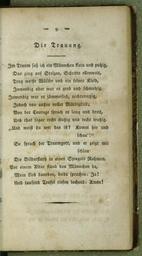 — 9 —
Die Trauung.
Im Traum sah ich ein Männchen klein und putzig,
Das ging auf Stelzen, Schritte ellenweit,
Trug weiße Wäsche und ein feines Kleid,
Inwendig aber war es grob und schmutzig.
Inwendig war es jämmerlich, nichtsnutzig,
Jedoch von außen voller Würdigkeit;
Von der Courage sprach es lang und breit,
Und that sogar recht trutzig und recht stutzig.
„Und weißt du wer das ist? Komm her und
schau!“
So sprach der Traumgott, und er zeigt mir
schlau
Die Bilderfluth in eines Spiegels Rahmen.
Vor einem Altar stand das Männchen da,
Mein Lieb daneben, beide sprachen: Ja!
Und tausend Teufel riefen lachend: Amen!